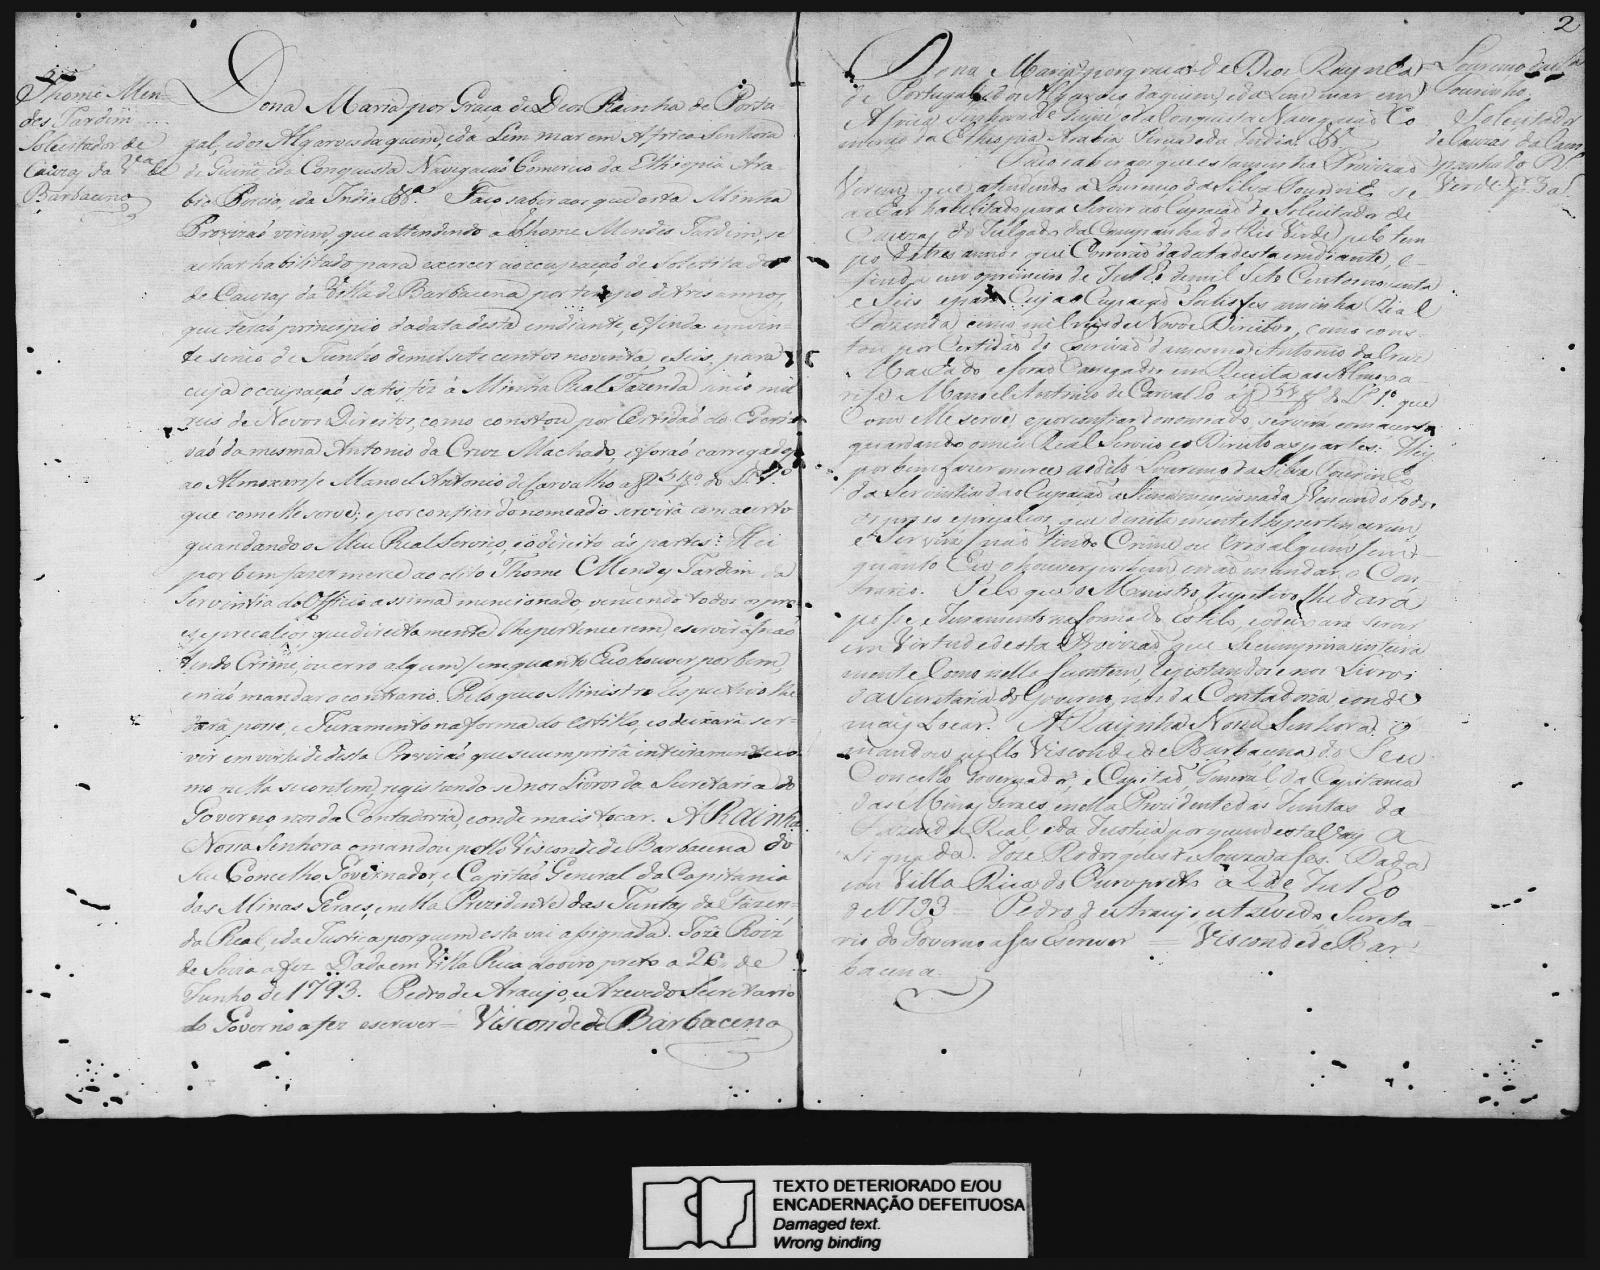 Thomé Men=
des Jardim
Solicitador de
Cauzas da Va. de
Barbacena
Dona Maria por Graça de Deos Rainha de Portu
gal, e dos Algarves daquem, e da Lem mar em Africa Senhora
de Guiné, e da Conquista Navegaçaõ Comercio da Ethiopia Ara
bia Percia, e da India &ª. Faço saber aos que esta Minha
Provizaõ virem, que attendendo a Thome Mendes Jardim, se
achar habilitado para exercer a occupaçaõ de Solicitador
de Cauzas da Villa de Barbacena, por tempo de tres annos,
que teraõ principio da data desta em diante, e finda em vin=
te sinco de Junho de mil sete centos noventa e seis, para
cuja occupaçaõ satisfez á Minha Real Fazenda sinco mil
reis de Novos Direitos, como constou por Certidaõ do Escri
vaõ da mesma Antonio da Cruz Machado, e foraõ carregados
ao Almoxarife Manoel Antonio de Carvalho a f 51 do L. 1º
que com elle serve; e por confiar do nomeado servirá com acerto
guardando o Meu Real Serviço, e o direito ás partes: Hei
por bem fazer merce ao dito Thome Mendes Jardim da
Serventia do Officio assima mencionado, vencendo todos os pro
es, e precalços, que directamente lhe pertencerem, e servirá (naõ
tendo Crime, ou erro algum) em quanto Eu o houver por bem,
e naõ mandar o contrario. Pelo que o Ministro respectivo lhe
dará posse, e Juramento na forma do estillo, e o deixará ser=
vir em virtude desta Provizaõ que se cumprirá inteiramente co
mo nella se contem, registando-se nos Livros da Secretaria do
Governo, nos da Contadoria, e onde mais tocar. A Rainha
Nossa Senhora o mandou pello Visconde de Barbacena do
Seu Concelho, Governador, e Capitaõ General da Capitania
das Minas Geraes, e nella Prezidente das Juntas da Fazen=
da Real, e da Justiça por quem esta vai assignada. Joze Roiz
de Soiza a fez Dada em Villa Rica do oiro preto a 26 de
Junho de 1793. Pedro de Araujo, e Azevedo Secretario
do Governo a fez escrever = Visconde de Barbacena
2
Lourenço da Sa.
Tourinho
Solicitador
de Cauzas da Cam
panha do R.
Verde
Dona Maria por graça de Deos Raynha
de Portugal, e dos Algarves daquem, e da Lem mar em
Africa Senhora de Guiné, e da Conquista Navegaçaõ Co
mercio da Ethiopia Arabia Percia e da India &ª
Faço saber aos que esta minha Provizaõ
Virem, que atendendo a Lourenço da Silva Tourinho se
achar habilitado para Servir a ocupaçaõ de Solicitador de
Cauzas do Julgado da Campanha do Rio Verde, pelo tem
po de tres annos, que Comesaraõ da data desta em diante, e
finda em o primeiro de Julho de mil Sete Centos noventa
e Seis, e para Cuja ocupaçaõ Satisfes a minha Real
Fazenda cinco mil reis de Novos Direitos, como cons
tou por Certidaõ do Escrivaõ da mesma Antonio da Cruz
Machado e foraõ Carregados em Receita ao Almoxa
rife Manoel Antonio de Carvalho a f 53 do L.º 1.º que
Com elle serve; e por confiar do nomeado, servirá com acerto
guardando o meu Real Serviço e o Direito as partes: Hey
por bem fazer merce ao dito Lourenço da Silva Tourinho
da Serventia da ocupaçaõ a Sima mencionada, Vencendo todos
os proes e precalços, que direitamente lhe pertencerem,
e Servirá (naõ tendo Crime ou erro algum) em
quanto Eu o houver por bem, e naõ mandar o Con
trario. Pelo que o Ministro respetivo lhe dará
posse, e Juramento na forma do Estilo, e o deixará Servir
em Virtude desta Provizaõ, que Se cumprirá inteira
mente Como nella Se contem, Registandose nos Livros
da Secretaria do Governo, nos da Contadoria, e onde
mais tocar. A Raynha Nossa Senhora o
mandou pello Visconde de Barbacena do Seu
Concelho Governador, e Capitaõ General da Capitania
das Minas Geraes, e nella Prezidente das Juntas da
Fazenda Real, e da Justiça, por quem esta Vay a
signada. Joze Rodrigues de Souza a fes. Dada
em Villa Rica do Ouro preto a 2 de Julho
de 1793 = Pedro de Araujo, e Azevedo, Secreta
rio do Governo a fes Escrever = Visconde de Bar
bacena
TEXTO DETERIORADO E/OU
ENCADERNAÇÃO DEFEITUOSA
Damaged text.
Wrong binding